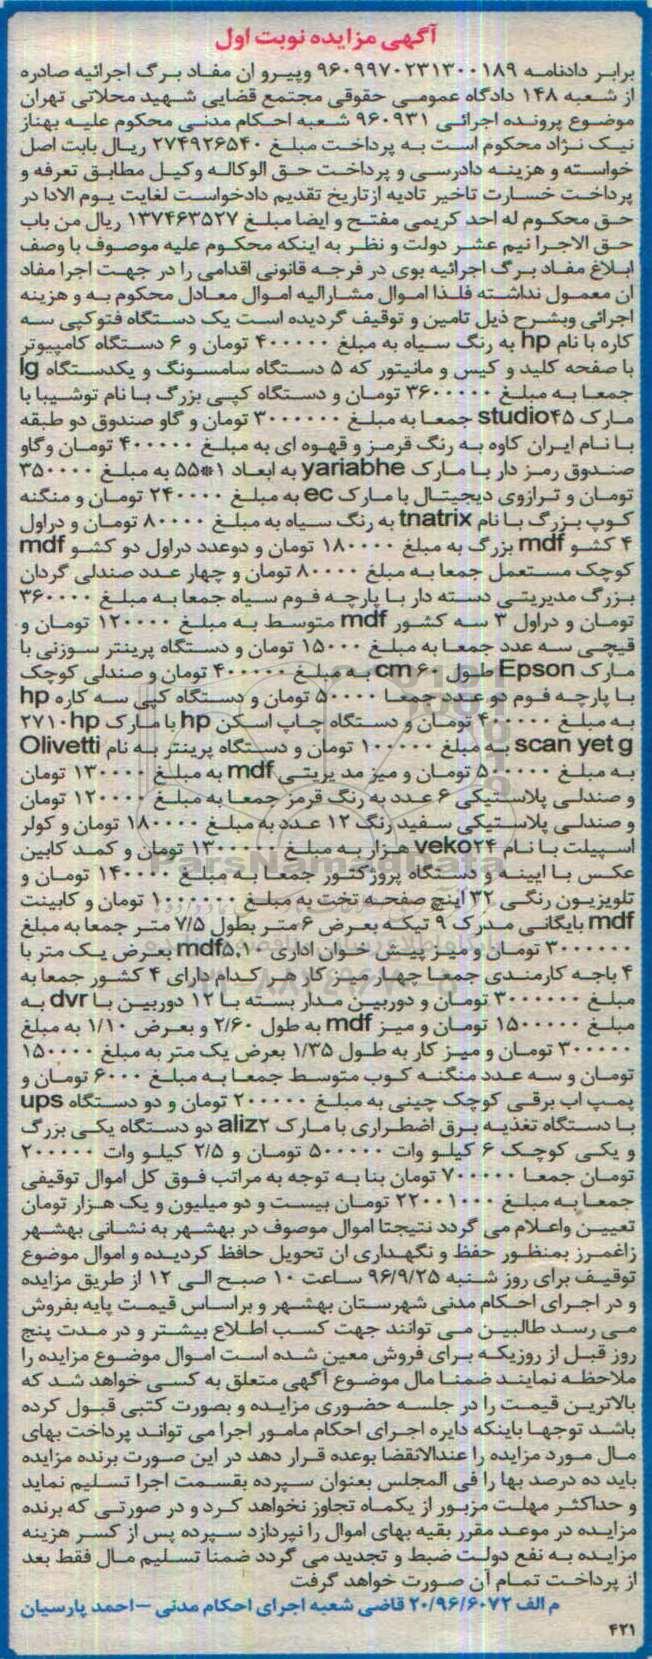 آگهی مزایده نوبت اول
برابر دادنامه ۹۶۰۹۹۷۰۲۳۱۳۰۰۱۸۹ وپیرو ان مفاد برگ اجرائیه صادره
از شعبه ۱۴۸ دادگاه عمومی حقوقی مجتمع قضایی شهید محلاتی تهران
موضوع پرونده اجرائی ۹۶۰۹۳۱ شعبه احکام مدنی محکوم علیه بهناز
نیک نژاد محکوم است به پرداخت مبلغ ۲۷۴۹۲۶۵۴۰ ریال بابت اصل
خواسته و هزینه دادرسی و پرداخت حق الوکاله وکیل مطابق تعرفه و
پرداخت خسارت تاخیر تادیه ازتاریخ تقدیم دادخواست لغایت یوم الادا در
حق محکوم له احد کریمی مفتح و ایضا مبلغ ۱۳۷۴۶۳۵۲۷ ریال من باب
حق الاجرا نیم عشر دولت و نظر به اینکه محکوم علیه موصوف با وصف
ابلاغ مفاد برگ اجرائیه بوی در فرجه قانونی اقدامی را در جهت اجرا مفاد
ان معمول نداشته فلذا اموال مشارالیه اموال معادل محکوم به و هزینه
اجرائی وبشرح ذیل تامین و توقیف گردیده است یک دستگاه فتوکپی سه
کاره با نام hp به رنگ سیاه به مبلغ ۴۰۰۰۰۰ تومان و ۶ دستگاه کامپیوتر
با صفحه کلید و کیس و مانیتور که ۵ دستگاه سامسونگ و یکدستگاه lg
جمعا به مبلغ ۳۶۰۰۰۰۰ تومان و دستگاه کپی بزرگ با نام توشیبا با
مارک studio۴۵ جمعا به مبلغ ۳۰۰۰۰۰۰ تومان و گاو صندوق دو طبقه
با نام ایران کاوه به رنگ قرمز و قهوه ای به مبلغ ۴۰۰۰۰۰ تومان وگاو
صندوق رمز دار با مارک yariabhe به ابعاد ۱*۵۵ به مبلغ ۳۵۰۰۰۰
تومان و ترازوی دیجیتال با مارک ec به مبلغ ۲۴۰۰۰۰ تومان و منگنه
کوپ بزرگ با نام tnatrix به رنگ سیاه به مبلغ ۸۰۰۰۰ تومان و دراول
۴ کشو mdf بزرگ به مبلغ ۱۸۰۰۰۰ تومان و دوعدد دراول دو کشو mdf
کوچک مستعمل جمعا به مبلغ ۸۰۰۰۰ تومان و چهار عدد صندلی گردان
بزرگ مدیریتی دسته دار با پارچه فوم سیاه جمعا به مبلغ ۳۶۰۰۰۰
تومان و دراول ۳ سه کشور mdf متوسط به مبلغ ۱۲۰۰۰۰ تومان و
قیچی سه عدد جمعا به مبلغ ۱۵۰۰۰ تومان و دستگاه پرینتر سوزنی با
مارک Epson طول ۶۰cm به مبلغ ۴۰۰۰۰۰ تومان و صندلی کوچک
با پارچه فوم دو عدد جمعا ۵۰۰۰۰ تومان و دستگاه کپی سه کاره hp
به مبلغ ۴۰۰۰۰۰ تومان و دستگاه چاپ اسکن hp با مارک ۲۷۱۰hp
scan yet g به مبلغ ۱۰۰۰۰۰ تومان و دستگاه پرینتر به نام Olivetti
به مبلغ ۵۰۰۰۰۰ تومان و میز مدیریتی mdf به مبلغ ۱۳۰۰۰۰ تومان
و صندلی پلاستیکی ۶ عدد به رنگ قرمز جمعا به مبلغ ۱۲۰۰۰۰ تومان
و صندلی پلاستیکی سفید رنگ ۱۲ عدد به مبلغ ۱۸۰۰۰۰ تومان و کولر
اسپیلت با نام veko۲۴ هزار به مبلغ ۱۳۰۰۰۰۰ تومان و کمد کابین
عکس با ایینه و دستگاه پروژکتور جمعا به مبلغ ۱۴۰۰۰۰ تومان و
تلویزیون رنگی ۳۲ اینچ صفحه تخت به مبلغ ۱۰۰۰۰۰۰ تومان و کابینت
mdf بایگانی مدرک ۹ تیکه بعرض ۶ متر بطول ۷/۵ متر جمعا به مبلغ
۳۰۰۰۰۰۰ تومان و میز پیش خوان اداری mdf۵.۱۰ بعرض یک متر با
۴ باجه کارمندی جمعا چهار میز کار هر کدام دارای ۴ کشور جمعا به
مبلغ ۳۰۰۰۰۰۰ تومان و دوربین مدار بسته با ۱۲ دوربین با dvr به
مبلغ ۱۵۰۰۰۰۰ تومان و میز mdf به طول ۲/۶۰ و بعرض ۱/۱۰ به مبلغ
۳۰۰۰۰۰ تومان و میز کار به طول ۱/۳۵ بعرض یک متر به مبلغ ۱۵۰۰۰۰
تومان و سه عدد منگنه کوب متوسط جمعا به مبلغ ۶۰۰۰ تومان و
پمپ اب برقی کوچک چینی به مبلغ ۲۰۰۰۰۰ تومان و دو دستگاه ups
با دستگاه تغذیه برق اضطراری با مارک aliz۲ دو دستگاه یکی بزرگ
و یکی کوچک ۶ کیلو وات ۵۰۰۰۰۰ تومان و ۲/۵ کیلو وات ۲۰۰۰۰۰
تومان جمعا ۷۰۰۰۰۰ تومان بنا به توجه به مراتب فوق کل اموال توقیفی
جمعا به مبلغ ۲۲۰۰۱۰۰۰ تومان بیست و دو میلیون و یک هزار تومان
تعیین واعلام می گردد نتیجتا اموال موصوف در بهشهر به نشانی بهشهر
زاغمرز بمنظور حفظ و نگهداری ان تحویل حافظ گردیده و اموال موضوع
توقیف برای روز شنبه ۹۶/۹/۲۵ ساعت ۱۰ صبح الی ۱۲ از طریق مزایده
و در اجرای احکام مدنی شهرستان بهشهر و براساس قیمت پایه بفروش
می رسد طالبین می توانند جهت کسب اطلاع بیشتر و در مدت پنج
روز قبل از روزیکه برای فروش معین شده است اموال موضوع مزایده را
ملاحظه نمایند ضمنا مال موضوع آگهی متعلق به کسی خواهد شد که
بالاترین قیمت را در جلسه حضوری مزایده و بصورت کتبی قبول کرده
باشد توجها باینکه دایره اجرای احکام مامور اجرا می تواند پرداخت بهای
مال مورد مزایده را عندالانقضا بوعده قرار دهد در این صورت برنده مزایده
باید ده درصد بها را فی المجلس بعنوان سپرده بقسمت اجرا تسلیم نماید
و حداکثر مهلت مزبور از یکماه تجاوز نخواهد کرد و در صورتی که برنده
مزایده در موعد مقرر بقیه بهای اموال را نپردازد سپرده پس از کسر هزینه
مزایده به نفع دولت ضبط و تجدید می گردد ضمنا تسلیم مال فقط بعد
از پرداخت تمام آن صورت خواهد گرفت
م الف ۲۰/۹۶/۶۰۷۲ قاضی شعبه اجرای احکام مدنی – احمد پارسیان
۴۲۱
ParsNamadData